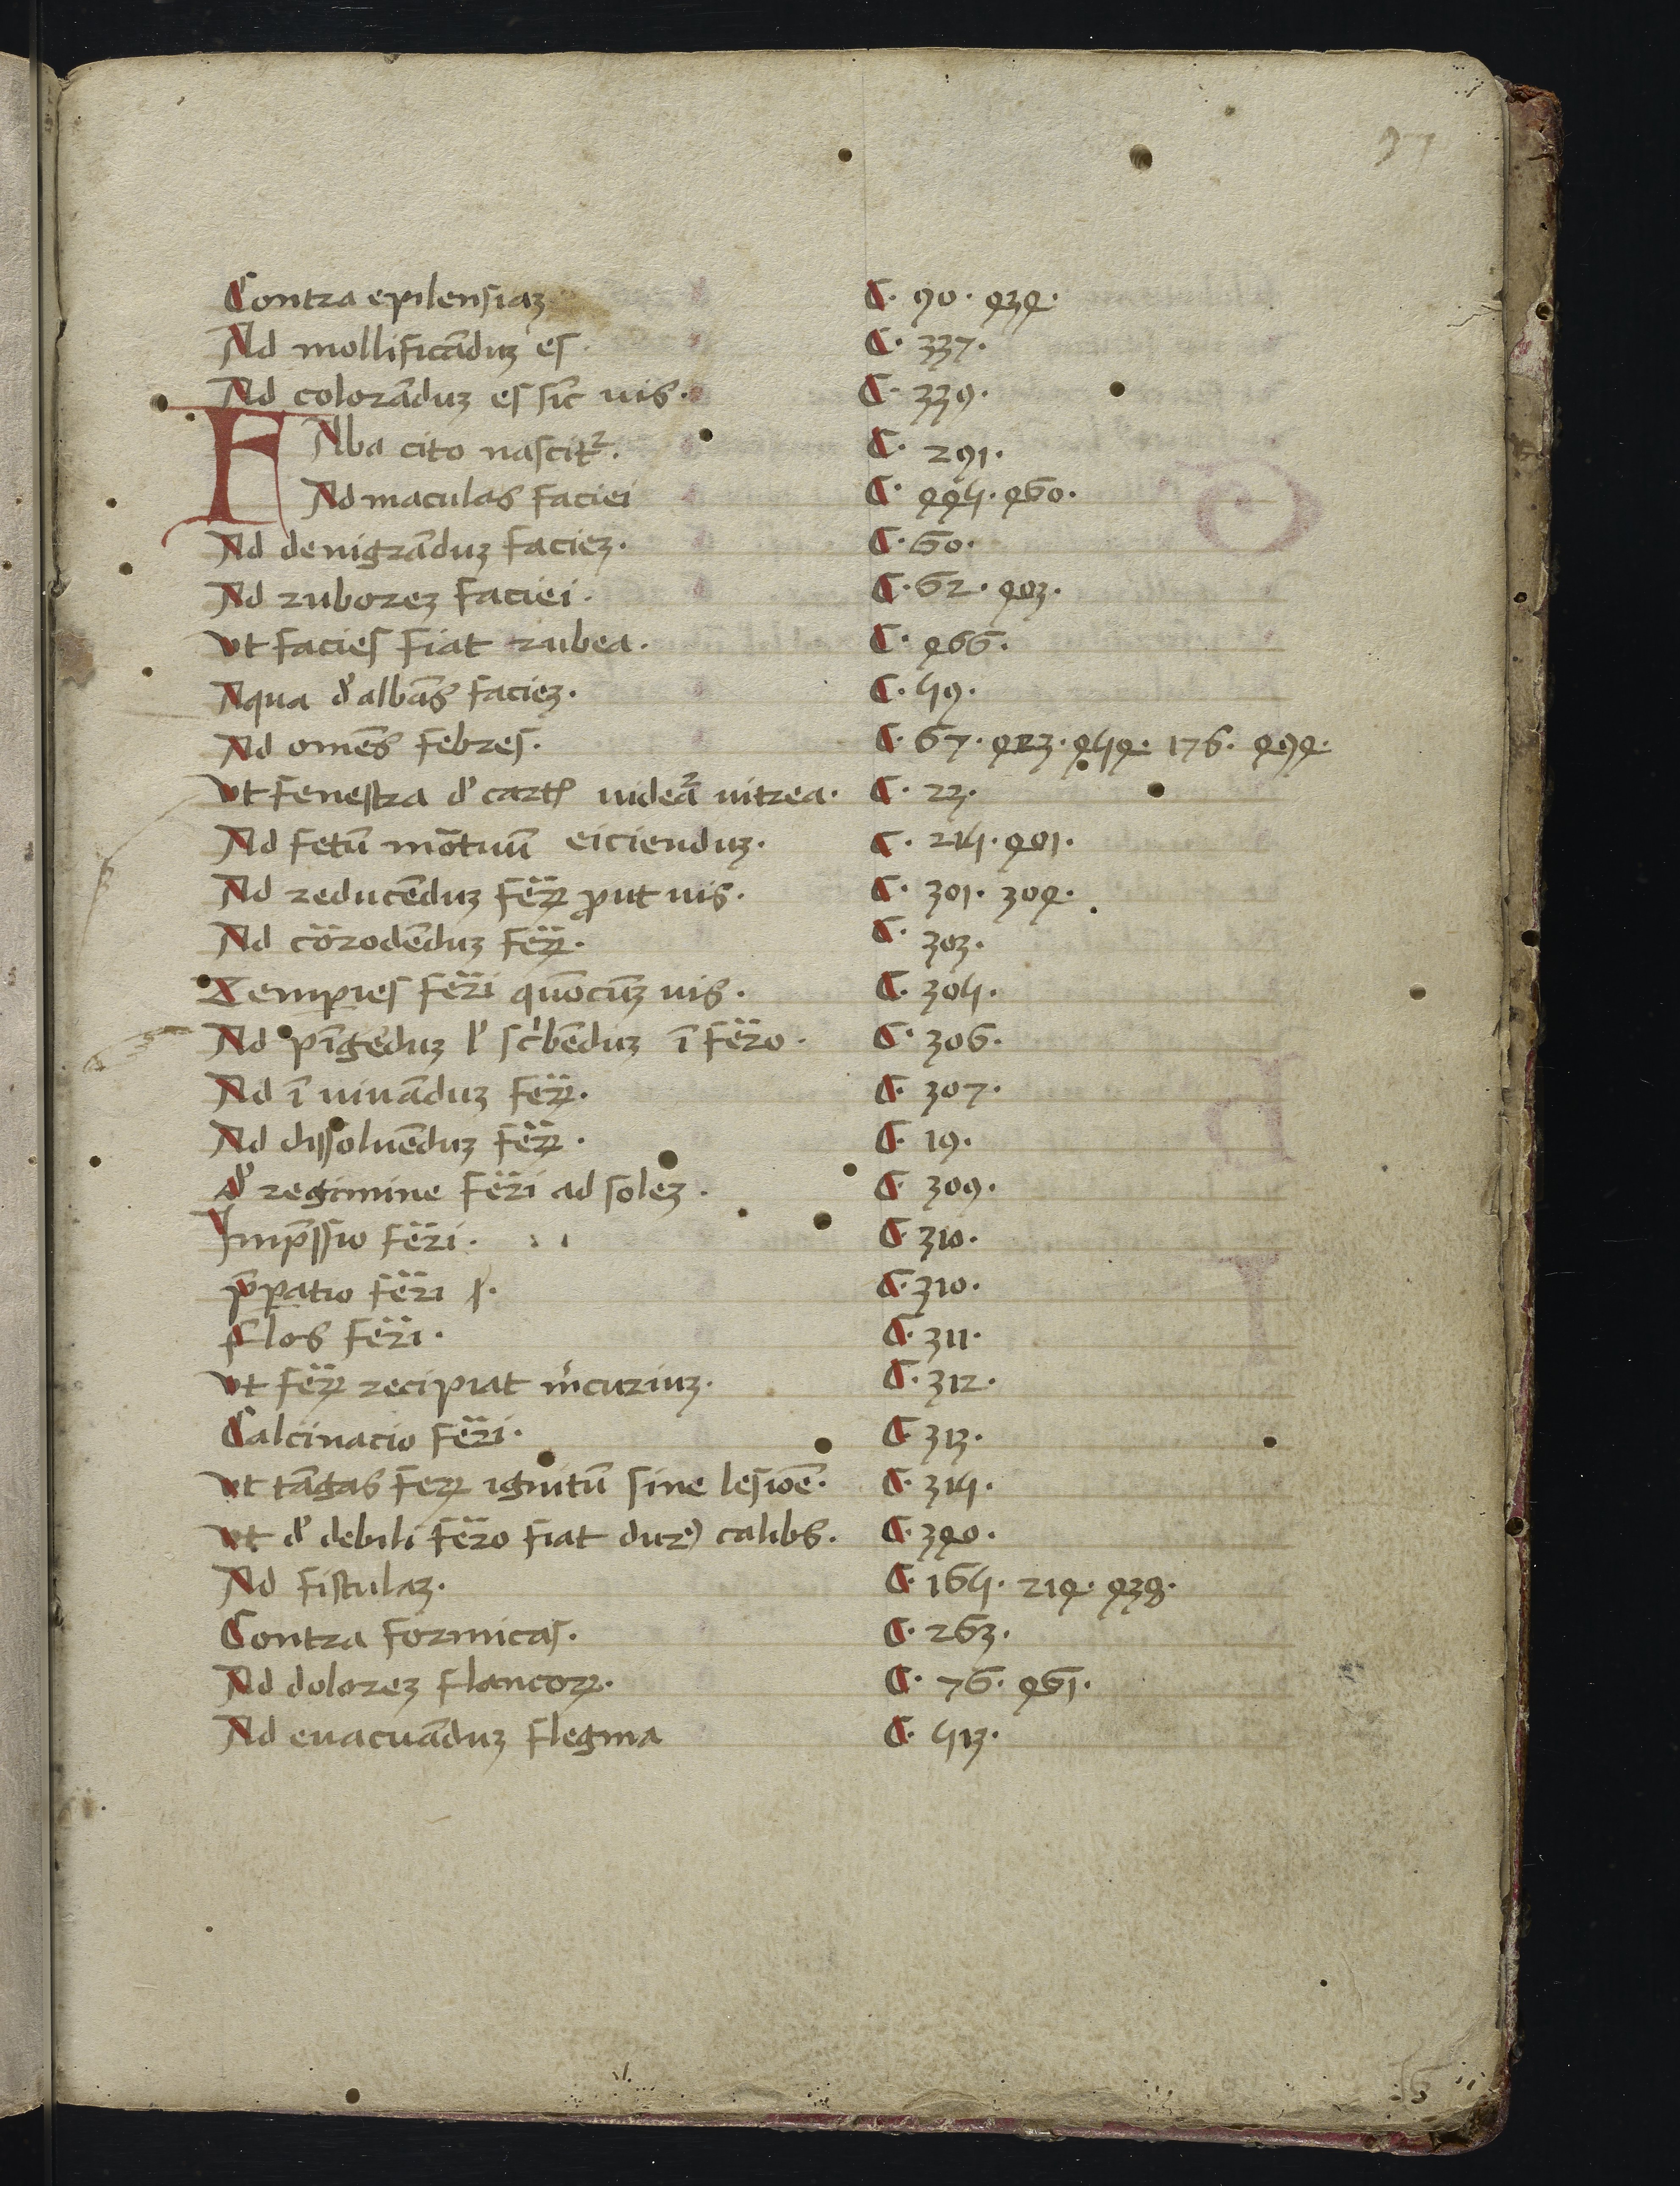 Contra epilensiaꝫ C. 90. 434.
Ad mollificāduꝫ es. C. 337.
Ad colorāduꝫ es sic̄ uis. C. 339.
FAba cito nascit᷑. C. 291.
Ad maculas faciei C. 445. 460.
Ad denigrāduꝫ facieꝫ. C. 60.
Ad ruboreꝫ faciei. C. 62. 403.
Vt facies fiat rubea. C. 466.
Aqua d' albās facieꝫ. C. 59.
Ad omēs febres. C. 67. 423. 454. 176. 494.
Vt fenestra d' cartꝭ uideā᷑ uitrea. C. 23.
Ad fetū mōtuū eicienduꝫ. C. 215. 401.
Ad reducēduꝫ fer̄ꝝ ꝓut uis. C. 301. 304.
Ad cōrodēduꝫ fer̄ꝝ. C. 303.
Temꝑies fer̄i quōcūꝫ uis. C. 305.
Ad pīgēduꝫ l' sc'bēduꝫ ī fer̄o. C. 306.
Ad ī uiuāduꝫ fer̄ꝝ. C. 307.
Ad dissoluēduꝫ fer̄ꝝ. C. 19.
d' regimine fer̄i ad soleꝫ. C. 309.
Imp̄ssio fer̄i. C. 310.
p̄ꝑatio fer̄i ſ. C. 310.
Flos fer̄i. C. 311.
Vt fer̄ꝝ recipiat m'curiuꝫ. C. 312.
Calcinacio fer̄i. C. 313.
Vt tāgas ferꝝ ignitū sine lesiōe. C. 315.
Vt d' debili fer̄o fiat durꝰ calibs. C. 340.
Ad fistulaꝫ. C. 165. 214. 438.
Contra formicas. C. 263.
Ad doloreꝫ flancoꝝ. C. 76. 461.
Ad euacuāduꝫ flegma C. 513.